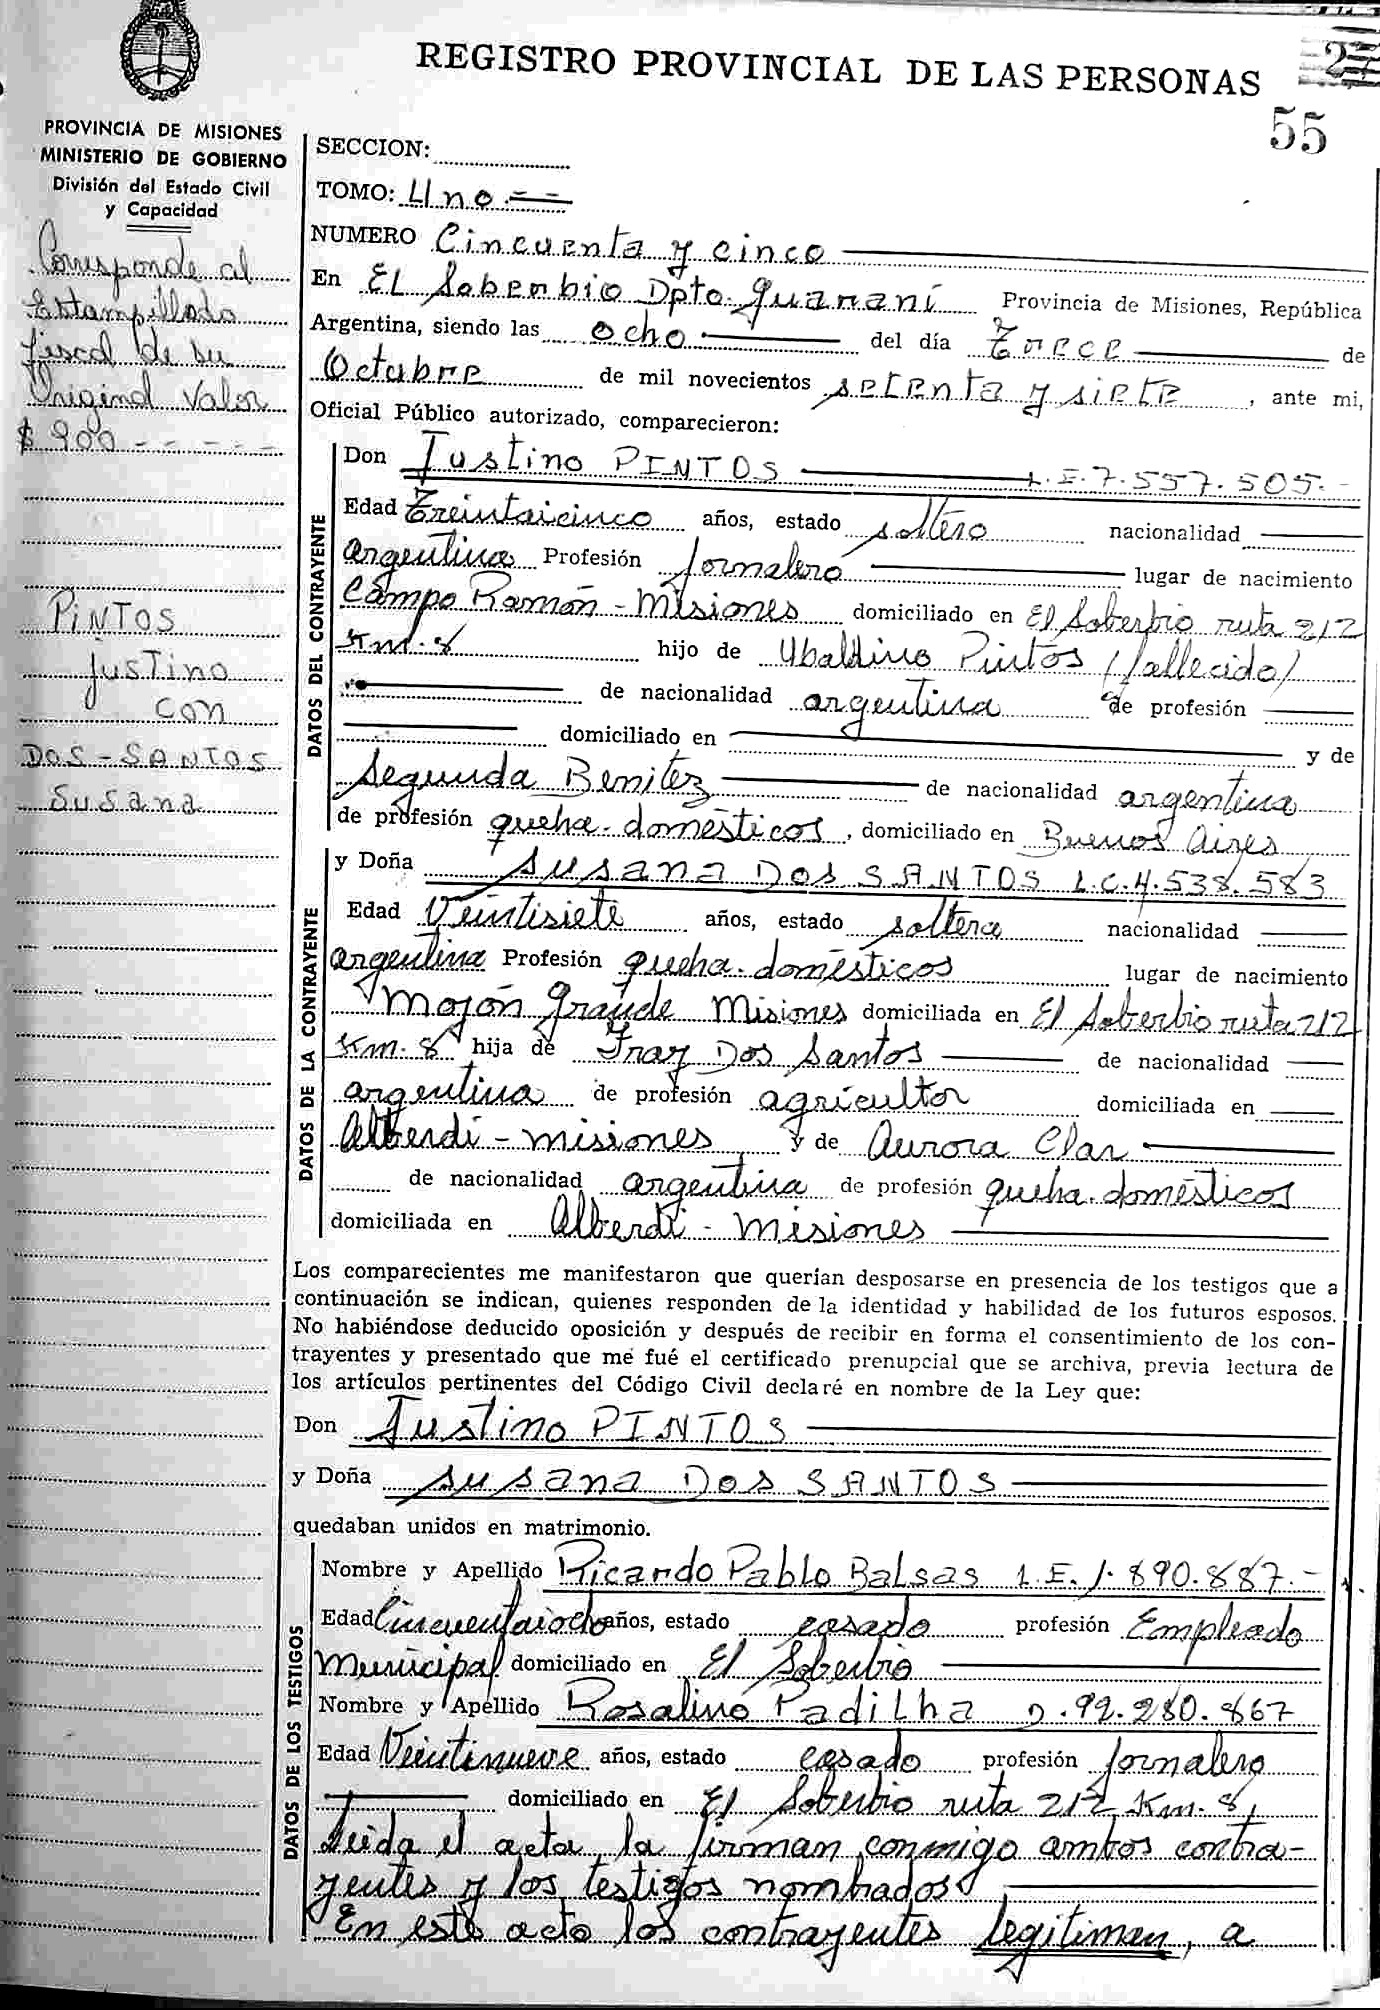 REGISTRO PROVINCIAL DE LAS PERSONAS
55
PROVINCIA DE MISIONES
MINISTERIO DE GOBIERNO
División del Estado Civil
y Capacidad
Corresponde al
Estampillado
fiscal de su
Original Valor
$ 900 - - - - -
PINTOS
Justino
con
DOS-SANTOS
Susana
SECCION:
TOMO: Uno.==
NUMERO Cincuenta y cinco
En EL Soberbio Dpto. Guaraní Provincia de Misiones, República
Argentina, siendo las ocho del día Trece de
Octubre de mil novecientos setenta y siete, ante mi,
Oficial Público autorizado, comparecieron:
DATOS DEL CONTRAYENTE
Don Justino PINTOS L.E.7.557.505.-
Edad Treintaicinco años, estado soltero nacionalidad
argentina Profesión Jornalero lugar de nacimiento
Campo Ramón - Misiones domiciliado en El Soberbio ruta 212
Km. 8 hijo de Ubaldino Pintos (fallecido)
de nacionalidad argentina de profesión
domiciliado en y de
Segunda Benitez de nacionalidad argentina
de profesión queha. domésticos, domiciliado en Buenos Aires
DATOS DE LA CONTRAYENTE
y Doña Susana DOS SANTOS L.C.4.538.583
Edad Veintisiete años, estado soltera nacionalidad
argentina Profesión queha. domésticos lugar de nacimiento
Mojón Grande Misiones domiciliada en El Soberbio ruta 212
Km. 8 hija de Fray Dos Santos de nacionalidad
argentina de profesión agricultor domiciliada en
Alberdi - Misiones y de Aurora Clar
de nacionalidad argentina de profesión queha. domésticos
domiciliada en Alberdi - Misiones
Los comparecientes me manifestaron que querían desposarse en presencia de los testigos que a
continuación se indican, quienes responden de la identidad y habilidad de los futuros esposos.
No habiéndose deducido oposición y después de recibir en forma el consentimiento de los con-
trayentes y presentado que me fué el certificado prenupcial que se archiva, previa lectura de
los artículos pertinentes del Código Civil declaré en nombre de la Ley que:
Don Justino PINTOS
y Doña Susana DOS SANTOS
quedaban unidos en matrimonio.
DATOS DE LOS TESTIGOS
Nombre y Apellido Ricardo Pablo Balsas L.E.1.890.887.-
Edad Cincuentaiocho años, estado casado profesión Empleado
Municipal domiciliado en El Soberbio
Nombre y Apellido Rosalino Padilha D.92.280.867
Edad Veintinueve años, estado casado profesión Jornalero
domiciliado en El Soberbio ruta 212, Km. 8,
Leida el acta, la firman conmigo ambos contra-
yentes y los testigos nombrados
En este acto los contrayentes legitiman, a